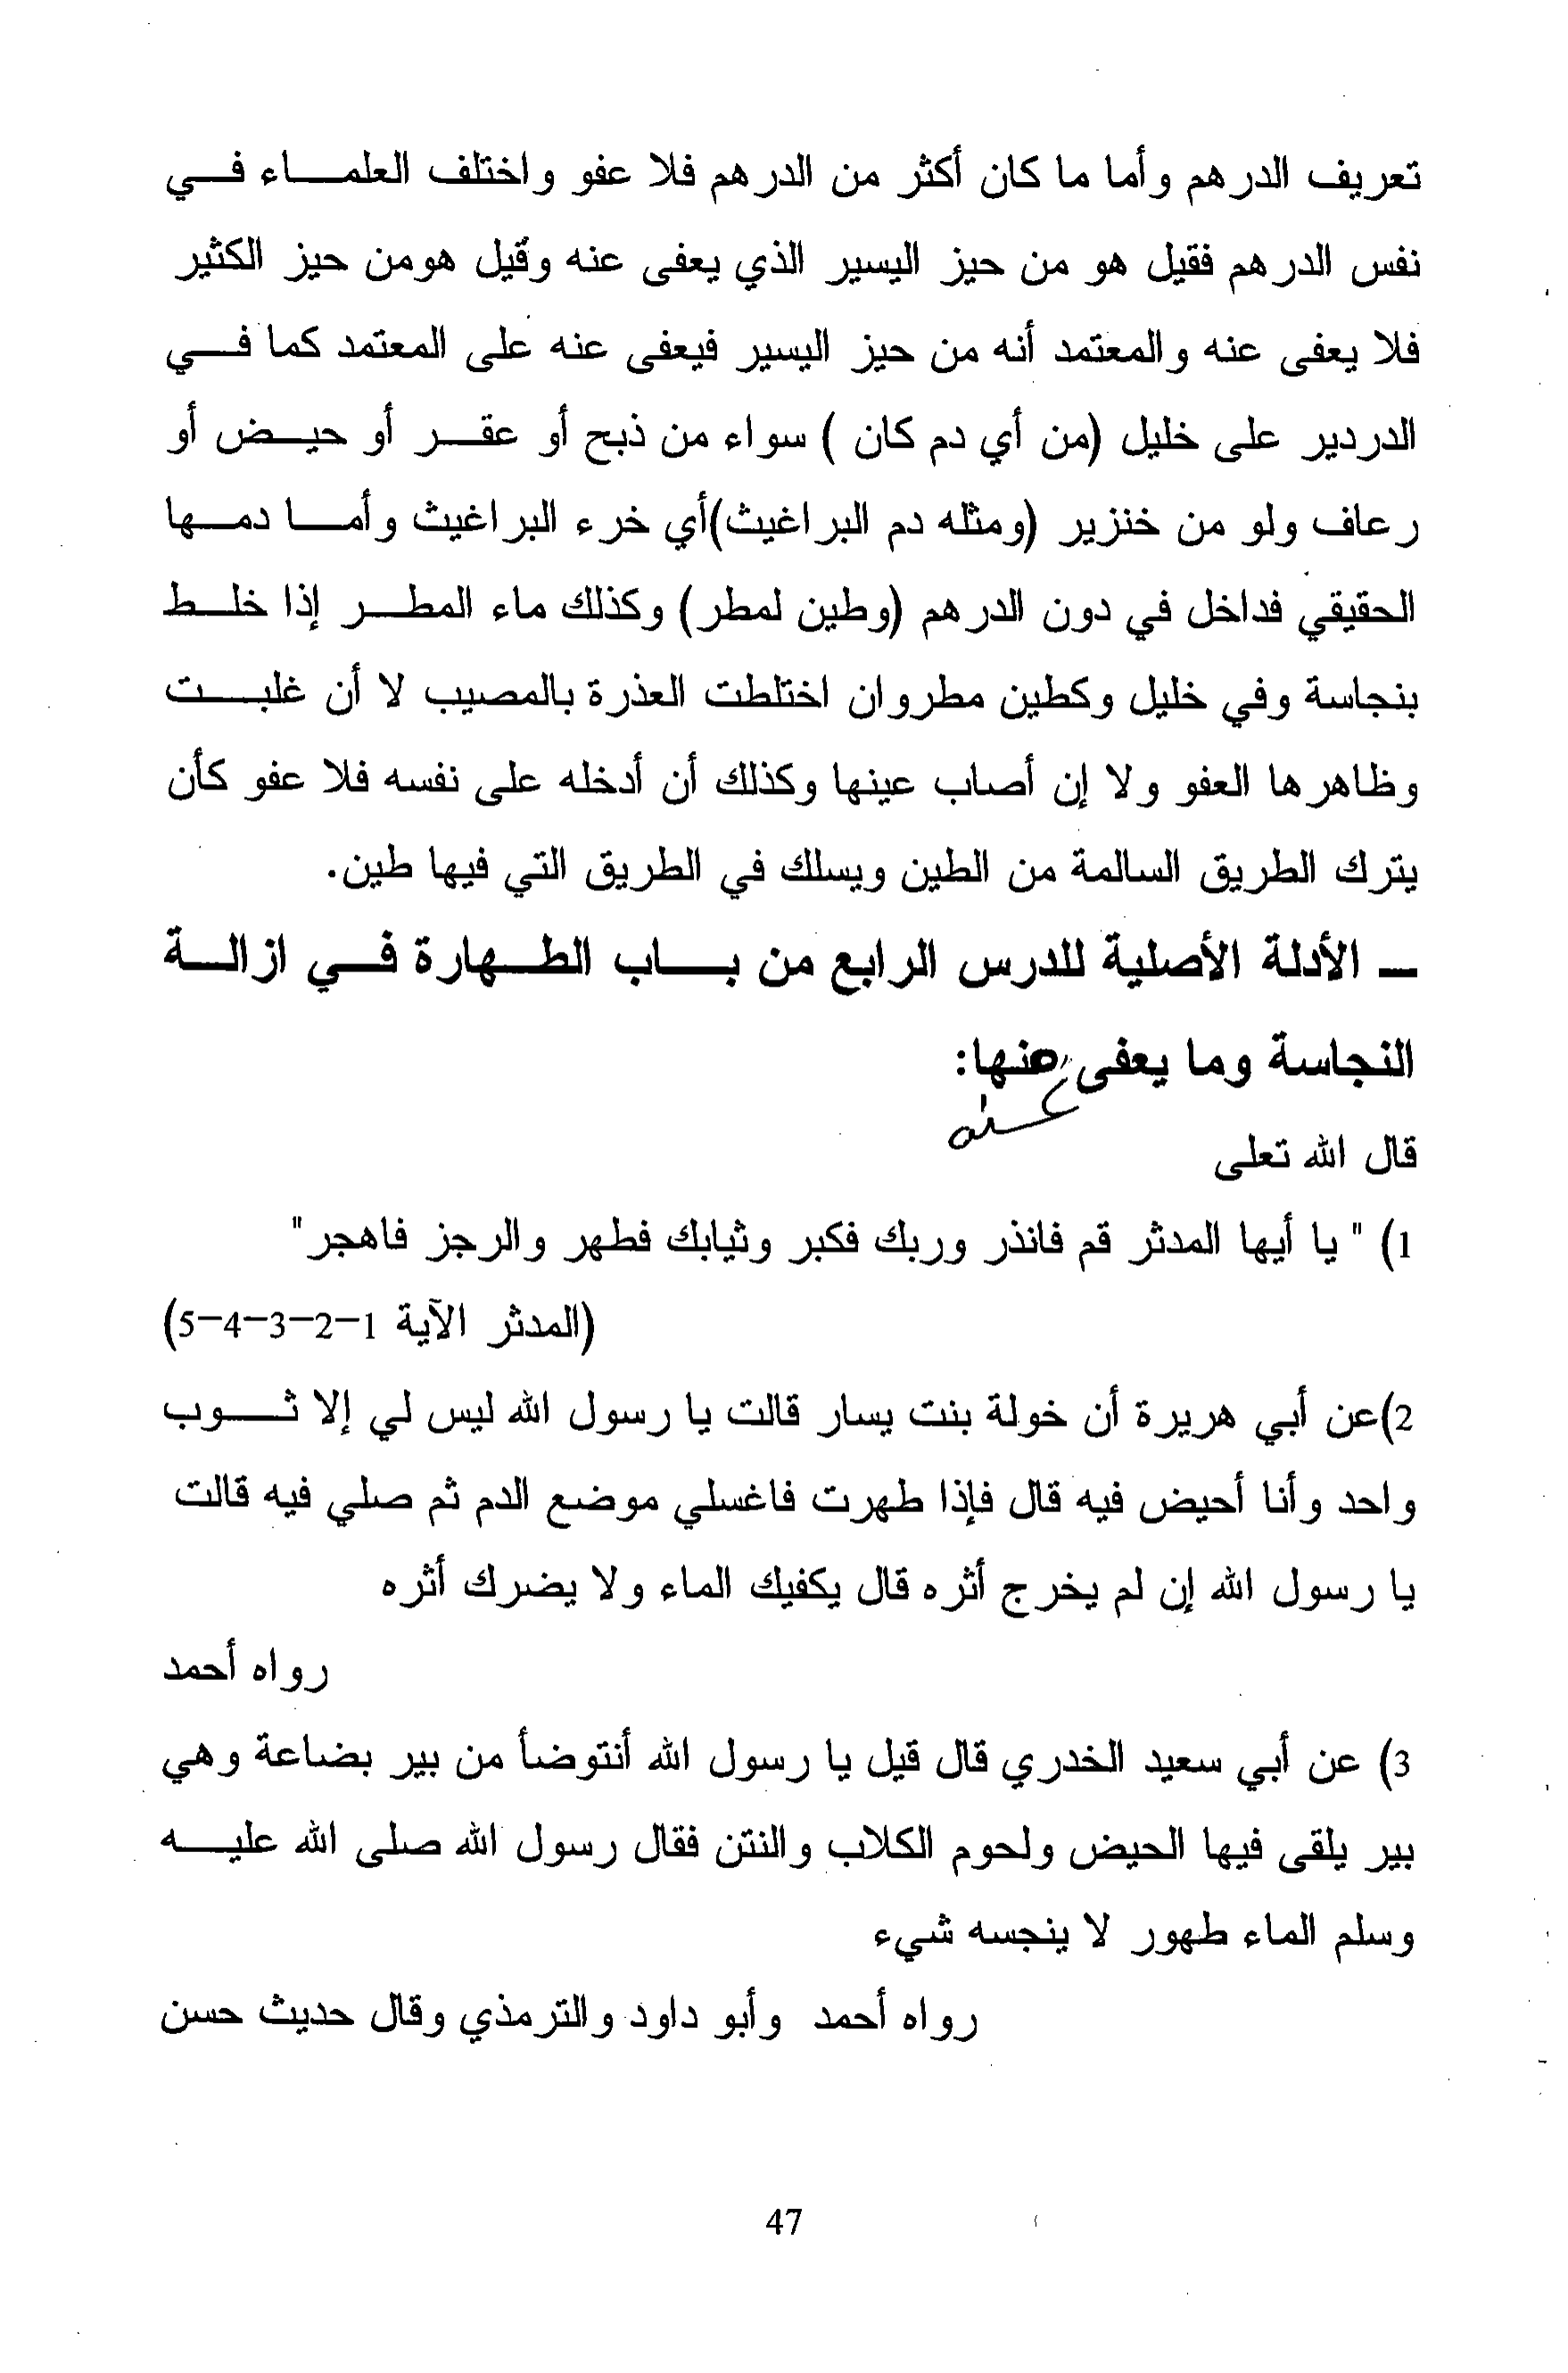 تعريف الدرهم وأما ما كان أكثر من الدرهم فلا عفو واختلف العلماء في
نفس الدرهم فقيل هو من حيز اليسير الذي يعفى عنه وقيل هومن حيز الكثير
فلا يعفى عنه والمعتمد أنه من حيز اليسير فيعفى عنه على المعتمد كما في
الدردير على خليل (من أي دم كان ) سواء من ذبح أو عقر أو حيض أو
رعاف ولو من خنزير (ومثله دم البراغيث)أي خرء البراغيث وأما دمها
الحقيقي فداخل في دون الدرهم (وطين لمطر) وكذلك ماء المطر إذا خلط
بنجاسة وفي خليل وكطين مطروان اختلطت العذرة بالمصيب لا أن غلبت
وظاهرها العفو ولا إن أصاب عينها وكذلك أن أدخله على نفسه فلا عفو كأن
يترك الطريق السالمة من الطين ويسلك في الطريق التي فيها طين.
– الأدلة الأصلية للدرس الرابع من باب الطهارة في ازالة
النجاسة وما يعفى عنها:
عنه
قال الله تعلى
1) " يا أيها المدثر قم فانذر وربك فكبر وثيابك فطهر والرجز فاهجر"
(المدثر الآية 1–2–3–4–5)
2)عن أبي هريرة أن خولة بنت يسار قالت يا رسول الله ليس لي إلا ثوب
واحد وأنا أحيض فيه قال فإذا طهرت فاغسلي موضع الدم ثم صلي فيه قالت
يا رسول الله إن لم يخرج أثره قال يكفيك الماء ولا يضرك أثره
رواه أحمد
3) عن أبي سعيد الخدري قال قيل يا رسول الله أنتوضأ من بير بضاعة وهي
بير يلقى فيها الحيض ولحوم الكلاب والنتن فقال رسول الله صلى الله عليه
وسلم الماء طهور لا ينجسه شيء
رواه أحمد وأبو داود والترمذي وقال حديث حسن
47